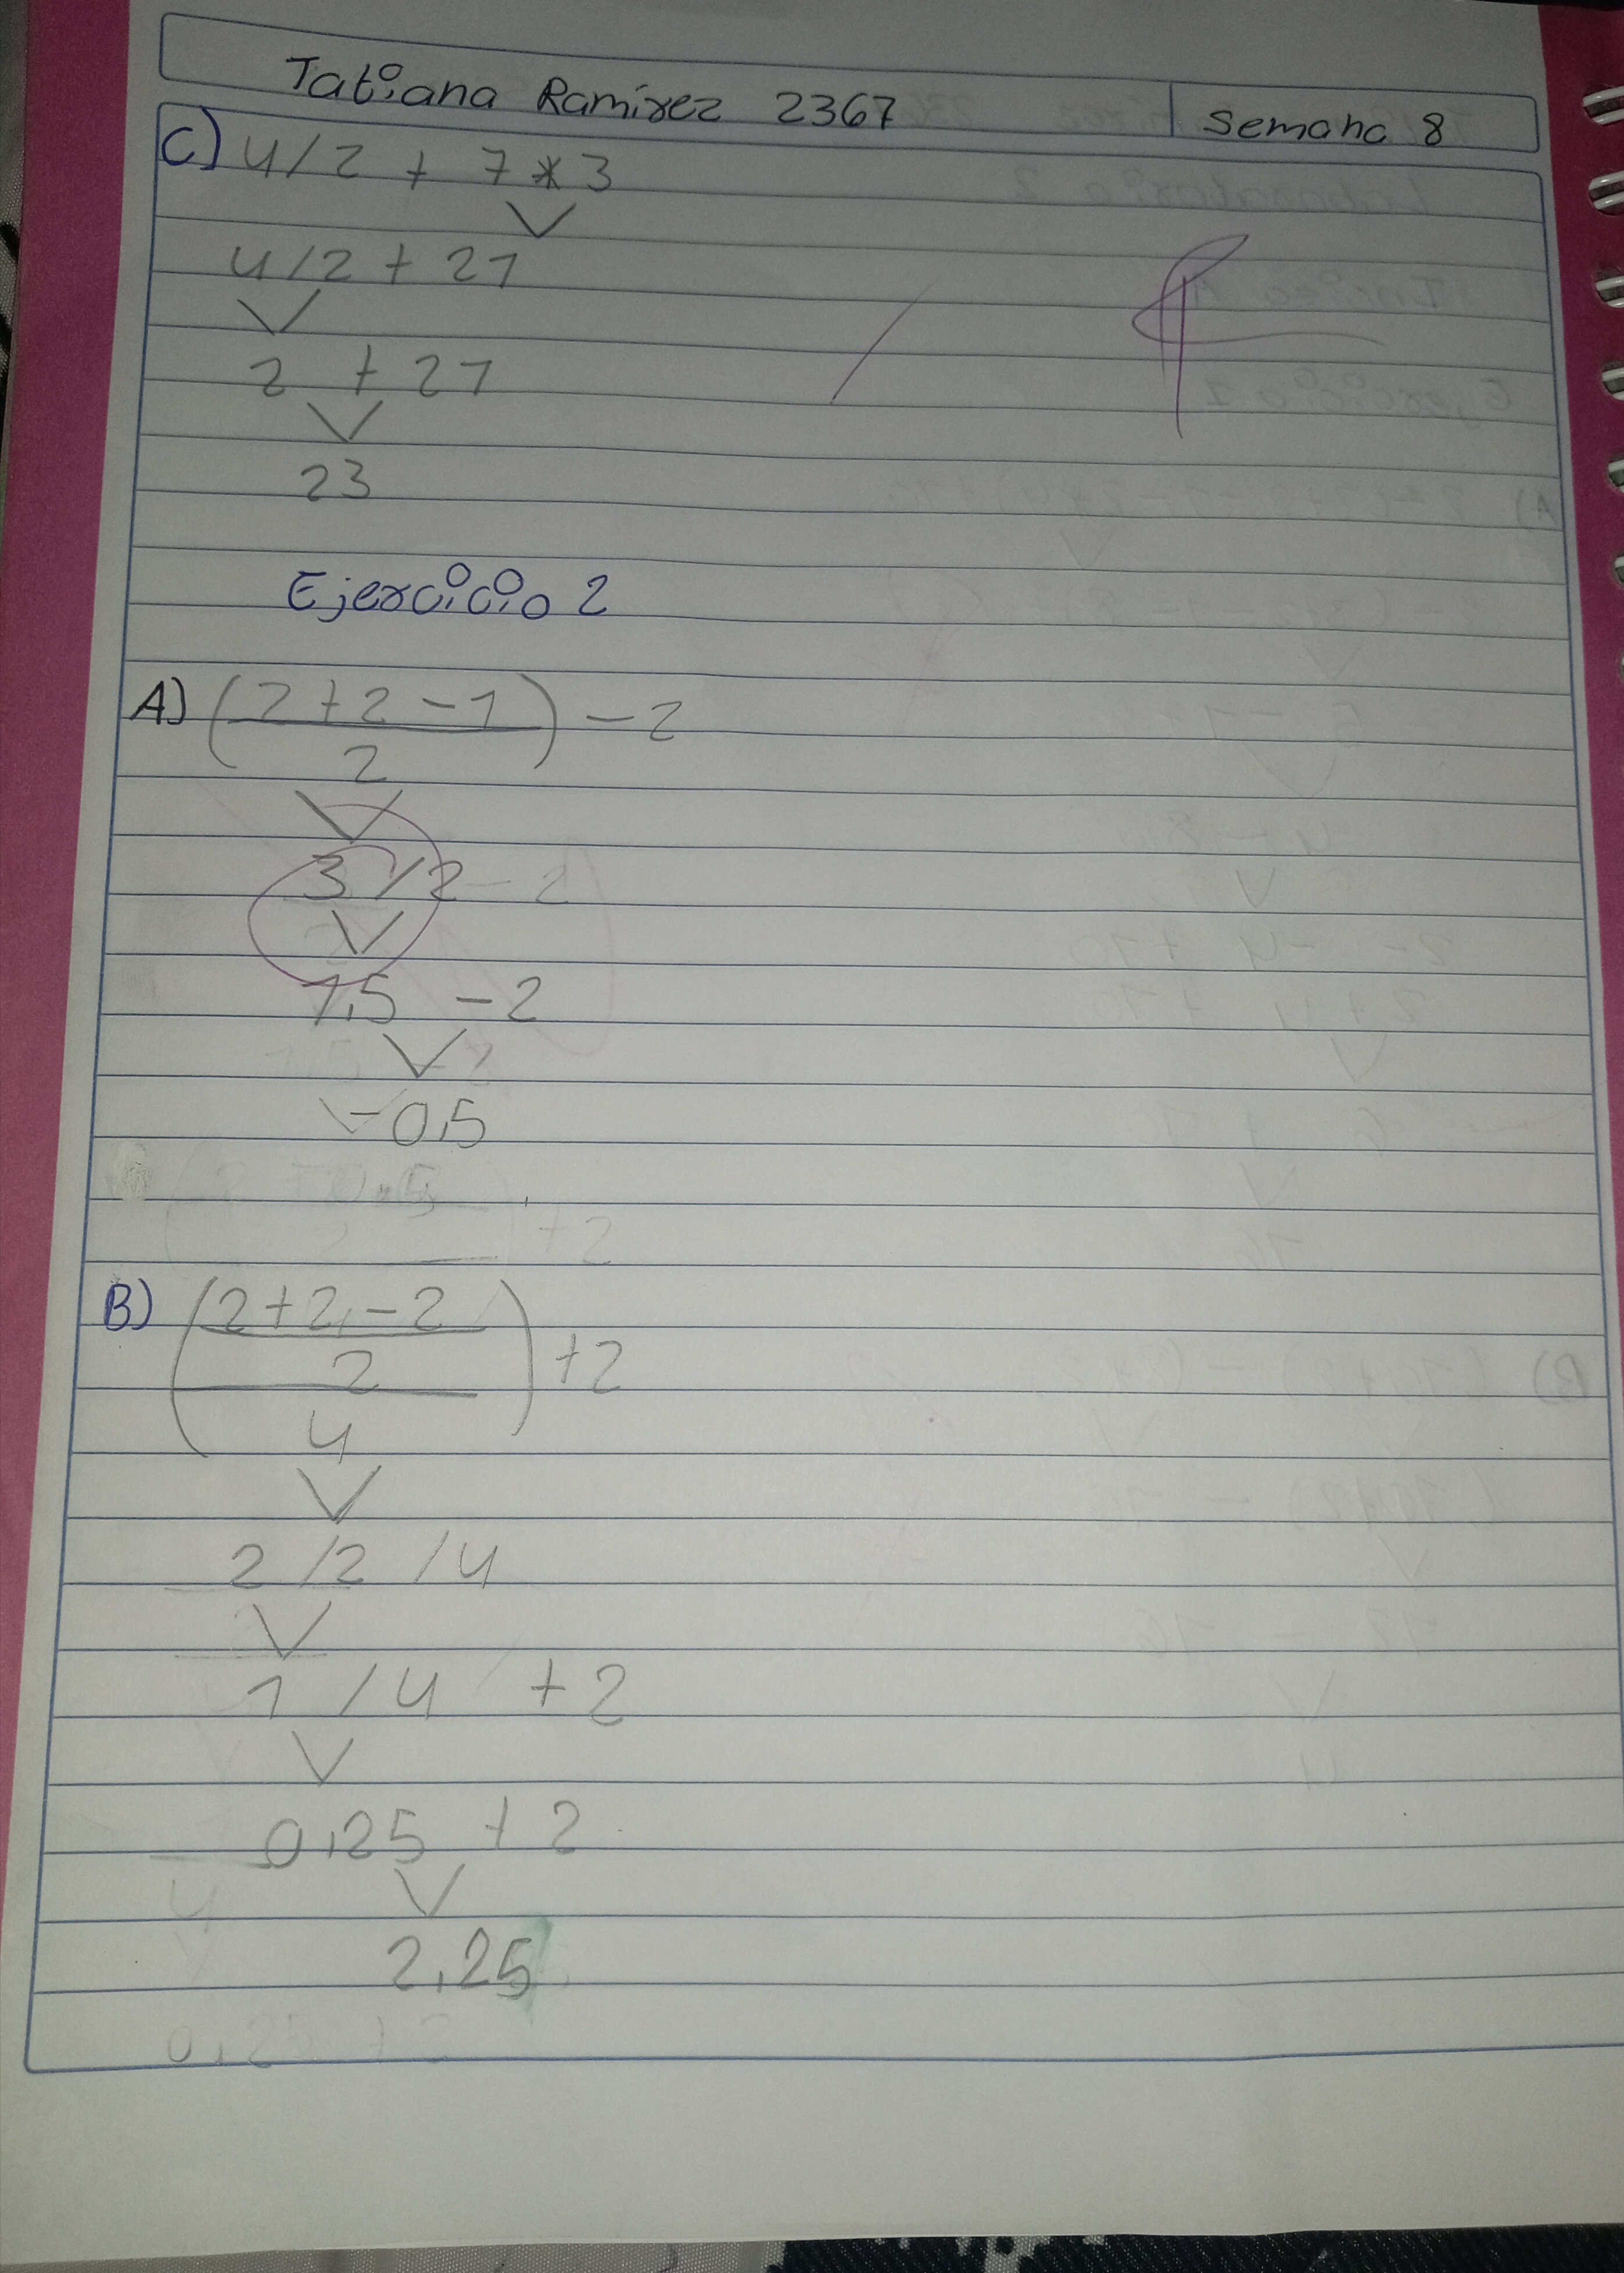 Tatiana Ramirez 2367
Semana 8
C) 4/2 + 7*3
4/2 + 21
2 + 21
23
Ejercicio 2
A) (2+2-1) - 2
2
3/2 - 2
1,5 - 2
-0,5
B) (2+2,-2) +2
2
4
2/2/4
1/4 +2
0,25 + 2
2,25
0,25 + 2